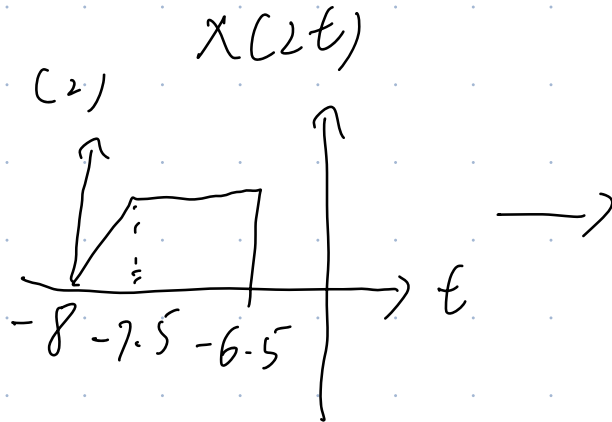 X(2t)
(2)
t
-8 -7.5 -6.5